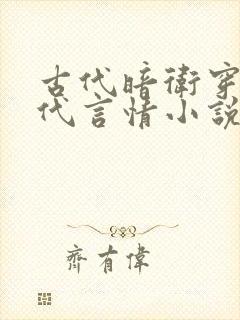 古代暗衛穿
代言情小說
齊有偉